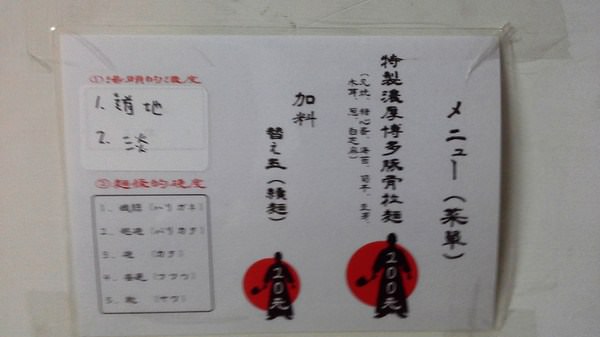 メニュー（菜單）
特製濃厚博多豚骨拉麵
200元
加料
替え玉（續麵）
20元
①湯頭的濃度
1. 道地
2. 淡
②麵條的硬度
1、鐵絲（ハリガネ）
2、超硬（バリカタ）
3、硬（カタ）
4、普通（フツウ）
5、軟（ヤワ）